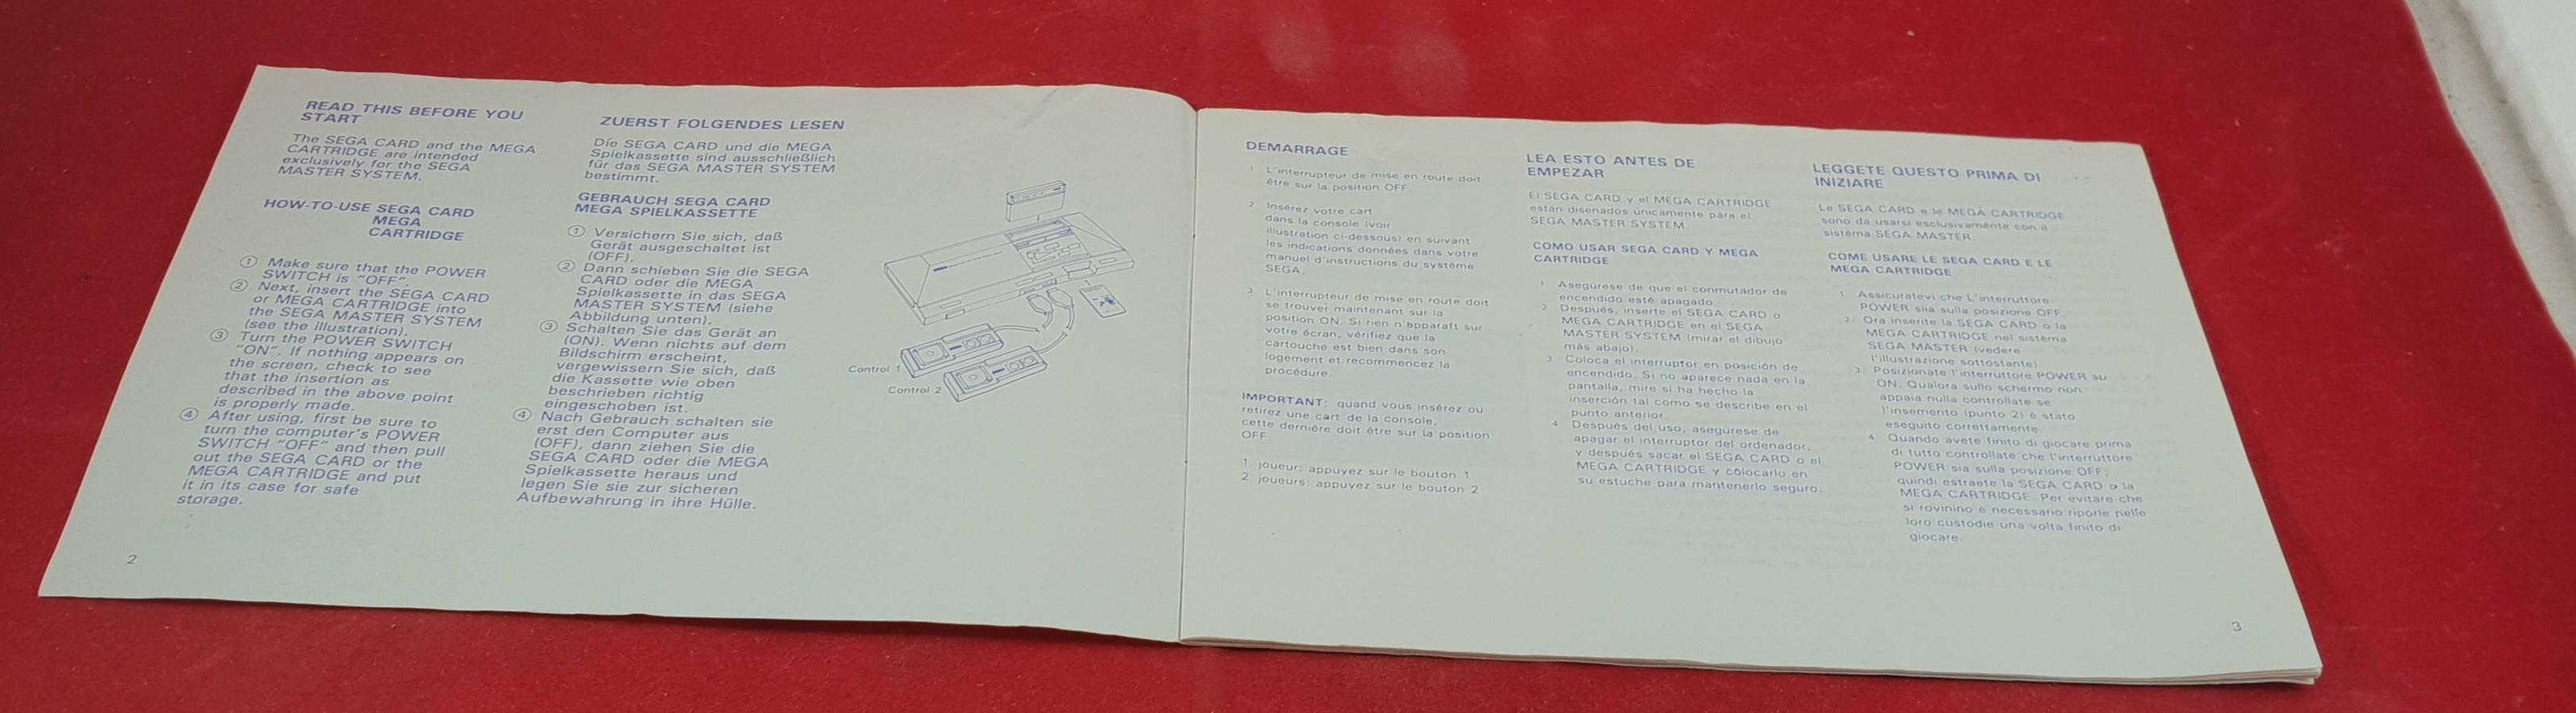 READ THIS BEFORE YOU
START
The SEGA CARD and the MEGA
CARTRIDGE are intended
exclusively for the SEGA
MASTER SYSTEM.
HOW-TO-USE SEGA CARD
MEGA
CARTRIDGE
① Make sure that the POWER
SWITCH is "OFF".
② Next, insert the SEGA CARD
or MEGA CARTRIDGE into
the SEGA MASTER SYSTEM
(see the illustration).
③ Turn the POWER SWITCH
"ON". If nothing appears on
the screen, check to see
that the insertion as
described in the above point
is properly made.
④ After using, first be sure to
turn the computer's POWER
SWITCH "OFF" and then pull
out the SEGA CARD or the
MEGA CARTRIDGE and put
it in its case for safe
storage.
2
ZUERST FOLGENDES LESEN
Die SEGA CARD und die MEGA
Spielkassette sind ausschließlich
für das SEGA MASTER SYSTEM
bestimmt.
GEBRAUCH SEGA CARD
MEGA SPIELKASSETTE
① Versichern Sie sich, daß
Gerät ausgeschaltet ist
(OFF).
② Dann schieben Sie die SEGA
CARD oder die MEGA
Spielkassette in das SEGA
MASTER SYSTEM (siehe
Abbildung unten).
③ Schalten Sie das Gerät an
(ON). Wenn nichts auf dem
Bildschirm erscheint,
vergewissern Sie sich, daß
die Kassette wie oben
beschrieben richtig
eingeschoben ist.
④ Nach Gebrauch schalten sie
erst den Computer aus
(OFF), dann ziehen Sie die
SEGA CARD oder die MEGA
Spielkassette heraus und
legen Sie sie zur sicheren
Aufbewahrung in ihre Hülle.
Control 1
Control 2
DEMARRAGE
1 L'interrupteur de mise en route doit
être sur la position OFF.
2 Insérez votre cart
dans la console (voir
illustration ci-dessous) en suivant
les indications données dans votre
manuel d'instructions du système
SEGA.
3 L'interrupteur de mise en route doit
se trouver maintenant sur la
position ON. Si rien n'apparaît sur
votre écran, vérifiez que la
cartouche est bien dans son
logement et recommencez la
procédure.
IMPORTANT: quand vous insérez ou
retirez une cart de la console,
cette dernière doit être sur la position
OFF.
1 joueur: appuyez sur le bouton 1
2 joueurs: appuyez sur le bouton 2
LEA ESTO ANTES DE
EMPEZAR
El SEGA CARD y el MEGA CARTRIDGE
están disenados únicamente para el
SEGA MASTER SYSTEM.
COMO USAR SEGA CARD Y MEGA
CARTRIDGE
1 Asegúrese de que el conmutador de
encendido esté apagado.
2 Después, inserte el SEGA CARD o
MEGA CARTRIDGE en el SEGA
MASTER SYSTEM (mirar el dibujo
más abajo).
3 Coloca el interruptor en posición de
encendido. Si no aparece nada en la
pantalla, mire si ha hecho la
inserción tal como se describe en el
punto anterior.
4 Después del uso, asegúrese de
apagar el interruptor del ordenador,
y después sacar el SEGA CARD o el
MEGA CARTRIDGE y colocarlo en
su estuche para mantenerlo seguro.
LEGGETE QUESTO PRIMA DI
INIZIARE
Le SEGA CARD e le MEGA CARTRIDGE
sono da usarsi esclusivamente con il
sistéma SEGA MASTER
COME USARE LE SEGA CARD E LE
MEGA CARTRIDGE
1 Assicuratevi che L'interruttore
POWER siia sulla posizione OFF.
2 Ora inserite la SEGA CARD o la
MEGA CARTRIDGE nel sistema
SEGA MASTER (vedere
l'illustrazione sottostante).
3 Posizionate l'interruttore POWER su
ON. Qualora sullo schermo non
appaia nulla controllate se
l'insemento (punto 2) è stato
eseguito correttamente.
4 Quando avete finito di giocare prima
di tutto controllate che l'interruttore
POWER sia sulla posizione OFF;
quindi estraete la SEGA CARD o la
MEGA CARTRIDGE. Per evitare che
si rovinino è necessario riporle nelle
loro custodie una volta finito di
giocare.
3